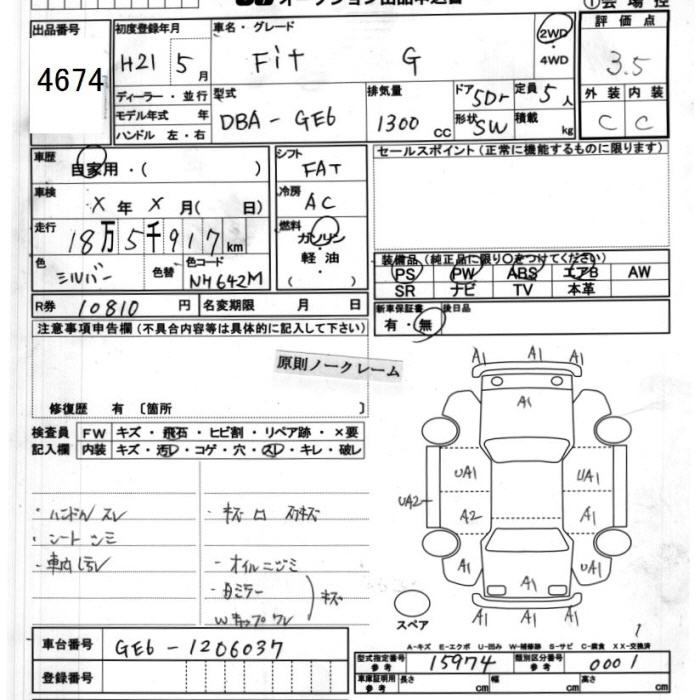 オークション出品申込書
出品番号 4674
初度登録年月 H21 5月
車名・グレード Fit G
2WD・4WD
評価点 3.5
外装 C 内装 C
ディーラー・並行
モデル年式 年
ハンドル 左・右
型式 DBA-GE6
排気量 1300 cc
ドア形状 5Dr SW
定員 5人
積載 kg
車歴 自家用・( )
車検 X年X月( 日)
走行 18万5千917km
色 シルバー 色替 色コード NH642M
R券 10810円 名変期限 月 日
シフト FAT
冷房 AC
燃料 ガソリン・軽油
セールスポイント(正常に機能するものに限ります)
装備品(純正品に限り○をつけてください)
PS PW ABS エアB AW
SR ナビ TV 本革
新車保証書 有・無 後日品
注意事項申告欄(不具合内容等は具体的に記入して下さい)
原則ノークレーム
修復歴 有〔箇所 〕
検査員記入欄
FW キズ・飛石・ヒビ割・リペア跡・×要
内装 キズ・汚レ・コゲ・穴・スレ・キレ・破レ
・ハンドル スレ
・シート シミ
・車内汚レ
・オイルニジミ
キズ
A1 A1 A1
A1
UA1 UA1
UA2 A2 A1
A1 A1 UA1
A1 A1 A1
スペア
A-キズ E-エクボ U-凹み W-補修跡 S-サビ C-腐食 XX-交換済
車台番号 GE6-1206037
登録番号
型式指定番号 参考 15974 類別区分番号 参考 0001
車庫証明用 参考 長さ cm 幅 cm 高さ cm